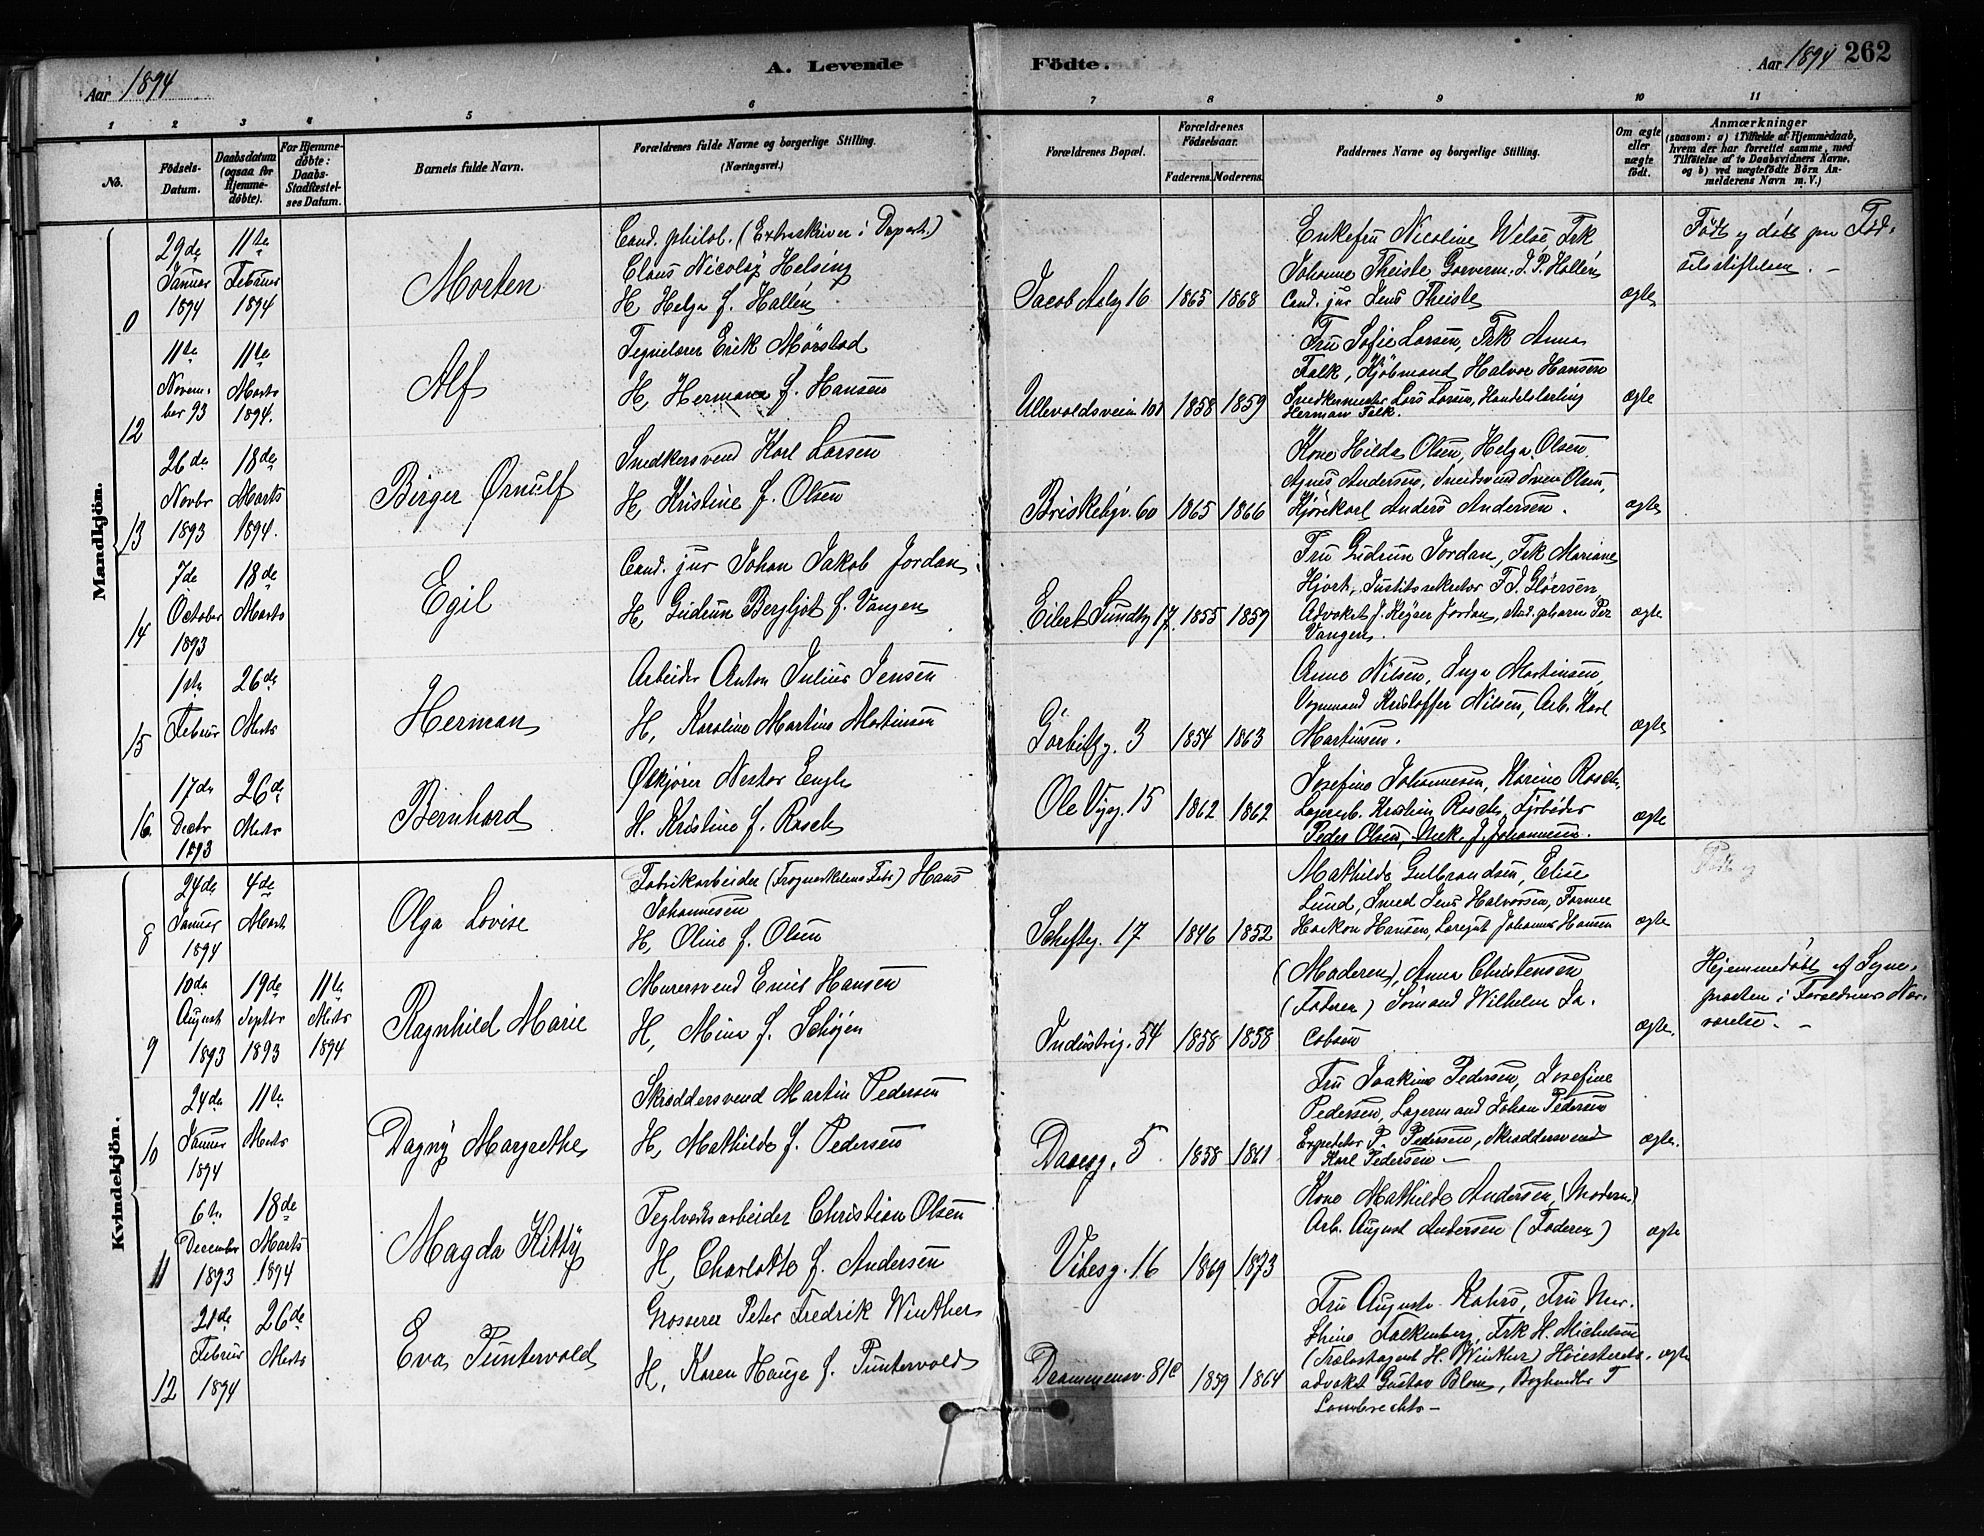 Aar 1894
A. Levende
Födte.
Aar 1894 262
1 2 3 4 5 6 7 8 9 10 11
No.
Fødsels-Datum.
Daabsdatum (ogsaa for Hjemmedøbte).
For Hjemmedøbte: Daabs-Stadfæstelses Datum.
Barnets fulde Navn.
Forældrenes fulde Navne og borgerlige Stilling. (Næringsvei.)
Forældrenes Bopæl.
Forældrenes Fødselsaar.
Faderens. Moderens.
Faddernes Navne og borgerlige Stilling.
Om ægte eller uægte født.
Anmærkninger
(saasom: a) i Tilfælde af Hjemmedaab, hvem der har forrettet samme, med Tilføielse af to Daabsvidners Navne, og b) ved uægtefødte Børn Anmelderens Navn m. V.)
Mandkjön.
0
29de Januar 1894
11te Februar 1894
Morten
Cand. philol. (Extraskriver i Depart.)
Claus Nicolay Helsing
H. Helga f. Hallén
Jacob Aalg 16
1865 1868
Enkefru Nicoline Welse, Frk
Johanne Theiste J. P. Hallén
Cand. jur Jens Theiste
ægte
Født og døbt paa Fød-
selsstiftelsen. -
12
11te November 93
11te Marts 1894.
Alf
Tegnelærer Erik Mørstad
H, Hermana f. Hansen
Ullevoldsveien 101
1858 1859
Fru Sofie Larsen, Frk Anna
Falk, Kjøbmand Halvor Hansen
Snedkermester Lars Larsen, Handelslærling
Herman Falk.
ægte
13
26de Novbr 1893
18de Marts 1894.
Birger Ørnulf
Snedkersvend Karl Larsen
H, Kristine f. Olsen
Briskebyv. 60
1865 1866
Kone Hilda Olsen, Helga Olsen
Agnes Andersen, Sven Olsen,
Kjørekarl Anders Andersen.
ægte
14
7de October 1893
18de Marts
Egil
Cand. jur Johan Jakob Jordan
H, Gudrun Bergljot f. Vangen
Eilert Sundtg 17.
1855 1859
Fru Gudrun Jordan, Frk Mariane
Hjort, F. S. Gløersen
Advokat J. Keyser Jordan, stud. pharm Per
Vangen.
ægte
15
1ste Februar
26de Marts
Herman
Arbeider Anton Julius Jensen
H, Karoline Martine Martinsen
Gørbitzg. 3
1854 1863
Anne Nilsen, Inga Martinsen,
Vognmand Kristoffer Nilsen, Arb. Karl
Martinsen.
ægte
16.
17de Decbr 1893
26de Marts
Bernhard
Ølkjører Nestor Engh
H. Kristine f. Rasch
Ole Vigg. 15
1862 1862
Josefine Johannesen, Karine Rasch,
Lagerarb. Kristian Rasch, Fyrbøder
Peder Olsen, J. Johannesen.
ægte
Kvindekjön.
8
24de Januar 1894
4de Marts
Olga Lovise
Fabrikarbeider (Frognerkilens Fabr.) Hans
Johannesen
H, Oline f. Olsen
Scheftg. 17
1846 1852
Mathilde Gulbrandsen, Elise
Lund, Smed Jens Halvorsen, Former
Haakon Hansen, Johannes Hansen
ægte
9
10de August 1893
19de Septbr 1893
11te Marts 1894
Ragnhild Marie
Murersvend Emil Hansen
H, Mina f. Schøjen
Industrig. 54
1858 1858
(Moderen), Anna Christensen
(Faderen) Sømand Wilhelm Ja-
cobsen
ægte.
Hjemmedøbt af Sogne-
præsten i Forældrenes Nær-
værelse. -
10
24de Januar 1894
11te Marts
Dagny Margrethe
Skræddersvend Martin Pedersen
H, Mathilde f. Pedersen
Daasg. 5
1858 1861
Fru Joakime Pedersen, Josefine
Pedersen, Lagermand Johan Pedersen
P. Pedersen, Skræddersvend
Karl Pedersen -
ægte.
11
6te December 1893
18de Marts 1894
Magda Kitty
Teglværksarbeider Christian Olsen
H, Charlotte f. Andersen
Vibesg. 16
1869 1873
Kone Mathilde Andersen, (Moderen)
Arb. August Andersen (Faderen)
ægte
12
21de Februar 1894
26de Marts
Eva Puntervold
Grosserer Peter Fredrik Winther
H, Karen Hauge f. Puntervold
Drammensv. 81c
1859 1864
Fru Augusta Kahrs, Fru
Falkenberg, Frk H. Michelsen
(Trælastagent H. Winther) Høiesterets-
advokat Gustav Blom, Boghandler T
Lambrechts -
ægte